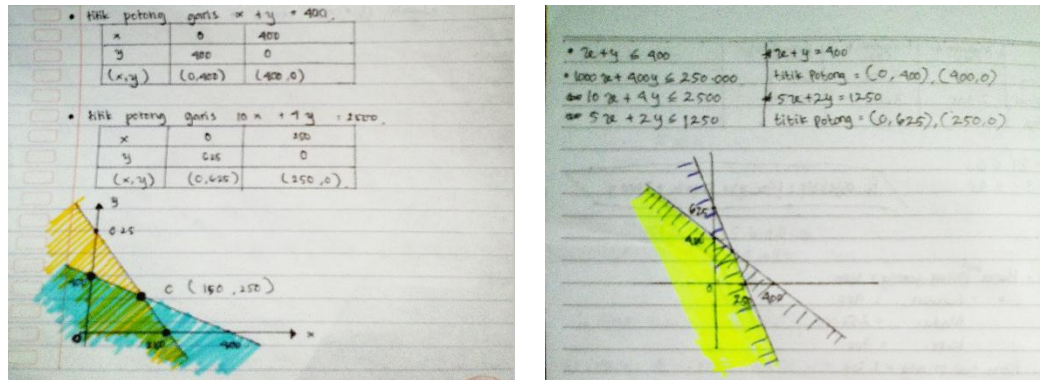 • titik potong garis x + y = 400
x 0 400
y 400 0
(x,y) (0,400) (400,0)
• titik potong garis 10x + 4y = 2500
x 0 250
y 625 0
(x,y) (0,625) (250,0)
y
625
400
C (150,250)
x
0
250
400
• x+y ≤ 400
• 1000x + 400y ≤ 250.000
10x + 4y ≤ 2500
5x + 2y ≤ 1250
x+y = 400
titik potong = (0,400), (400,0)
5x+2y = 1250
titik potong = (0,625), (250,0)
625
400
0
250
400